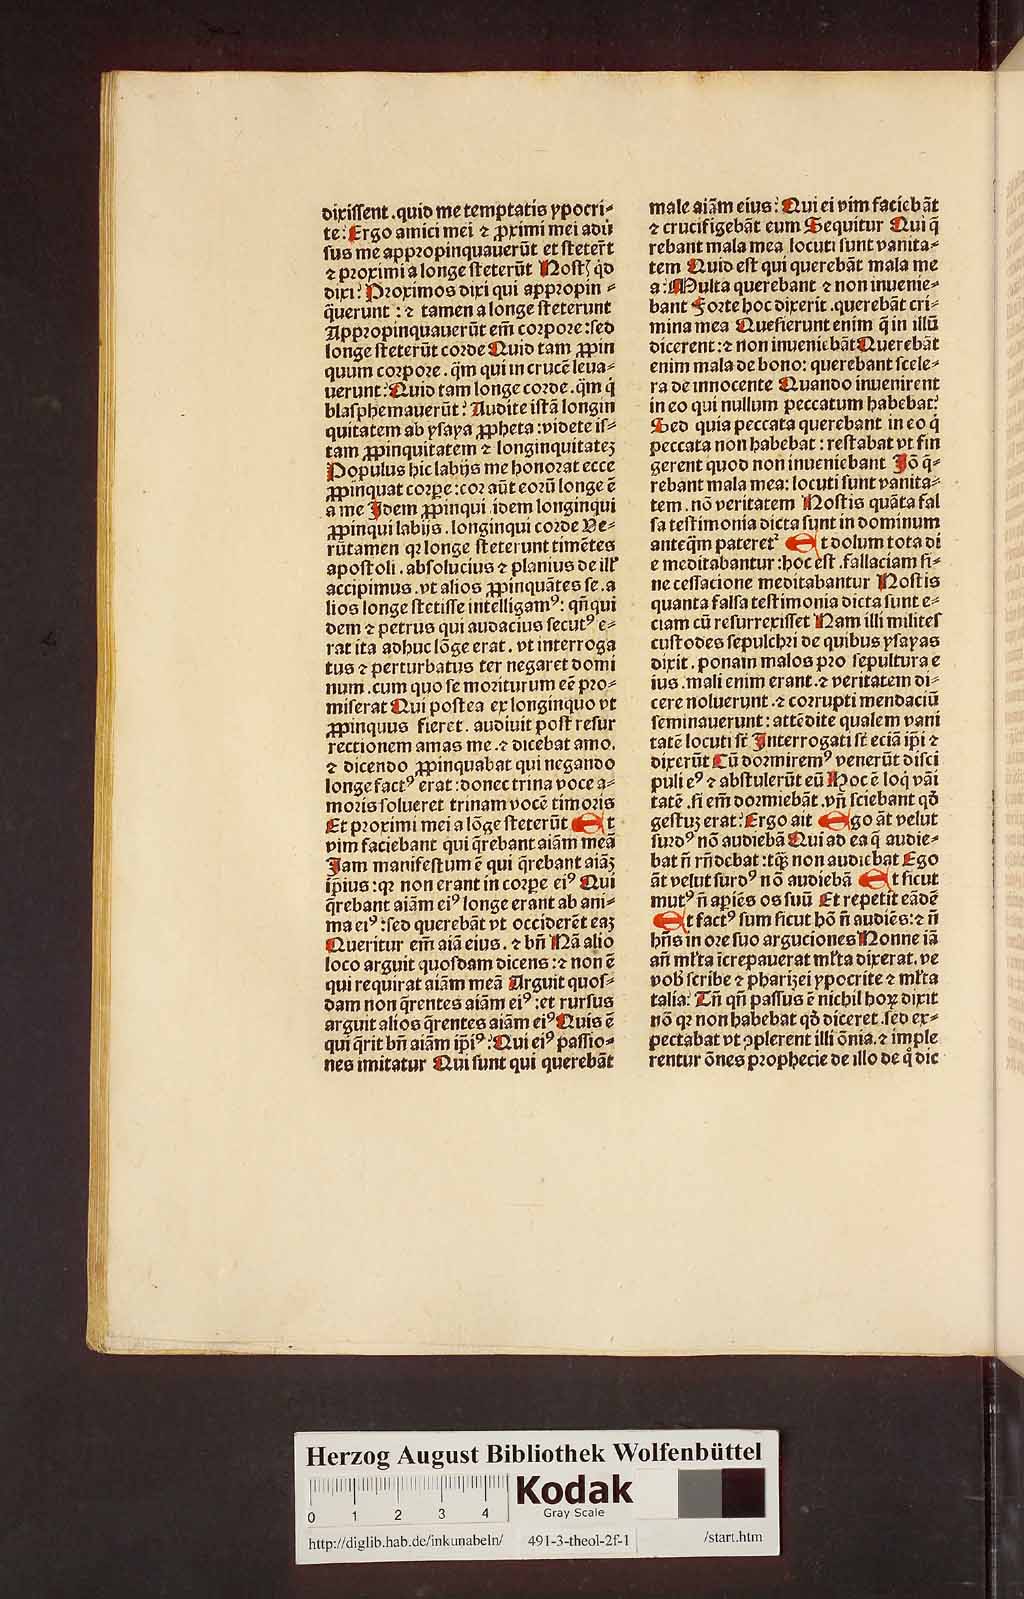 dixiſſent .quid me temptatis ypocri⸗
te: Ergo amici mei ⁊ ꝓximi mei adū
ſus me appropinquauerūt et ſteter̄t
⁊ proximi a longe ſteterūt Noſtꝫ qd̄
dixi? Proximos dixi qui appropin⸗
q̄uerunt : ⁊ tamen a longe ſteterunt
Appropinquauerūt em̄ corpore :ſed
longe ſteterūt corde Quid tam ꝓpin
quum corpore . q̄m qui in crucē leua⸗
uerunt? Quid tam longe corde .q̄m q̇
blaſphemauerūt? Audite iſtā longin
quitatem ab yſaya ꝓpheta :videte iſ⸗
tam ꝓpinquitatem ⁊ longinquitateꝫ
Populus hic labijs me honorat ecce
ꝓpinquat corꝑe :cor aūt eorū longe ē
a me Idem ꝓpinqui .idem longinqui
ꝓpinqui labijs . longinqui corde Ve⸗
rūtamen qꝛ longe ſteterunt timētes
apoſtoli . abſolucius ⁊ planius de ill'
accipimus .vt alios ꝓpinquātes ſe .a
lios longe ſtetiſſe intelligamꝰ: qn̄ qui
dem ⁊ petrus qui audacius ſecutꝰ e⸗
rat ita adhuc lōge erat . vt interroga
tus ⁊ perturbatus ter negaret domi
num .cum quo ſe moriturum eē pro⸗
miſerat Qui poſtea ex longinquo vt
ꝓpinquus fieret . audiuit poſt reſur
rectionem amas me .⁊ dicebat amo.
⁊ dicendo ꝓpinquabat qui negando
longe factꝰ erat :donec trina voce a⸗
moris ſolueret trinam vocē timoris
Et proximi mei a lōge ſteterūt Et
vim faciebant qui q̄rebant aiām meā
Jam manifeſtum ē qui q̄rebant aiāꝫ
ip̄ius :qꝛ non erant in corꝑe eiꝰ Qui
q̄rebant aiām eiꝰ longe erant ab ani⸗
ma eiꝰ :ſed querebāt vt occiderēt eaꝫ
Queritur em̄ aiā eius . ⁊ bn̄ Nā alio
loco arguit quoſdam dicens :⁊ non ē
qui requirat aiām meā Arguit quoſ⸗
dam non q̄rentes aiām eiꝰ :et rurſus
arguit alios q̄rentes aiām eiꝰ Quis ē
qui q̄rit bn̄ aiām ip̄iꝰ? Qui eiꝰ paſſio⸗
nes imitatur Qui ſunt qui querebāt
male aiām eius? Qui ei vim faciebāt
⁊ crucifigebāt eum Sequitur Qui q̄
rebant mala mea locuti ſunt vanita⸗
tem Quid eſt qui querebāt mala me
a? Multa querebant ⁊ non inuenie⸗
bant Forte hoc dixerit .querebāt cri⸗
mina mea Queſierunt enim q̄ in illū
dicerent :⁊ non inueniebāt Querebāt
enim mala de bono: querebant ſcele⸗
ra de innocente Quando inuenirent
in eo qui nullum peccatum habebat?
Sed quia peccata querebant in eo q̇
peccata non habebat : reſtabat vt fin
gerent quod non inueniebant Jō q̄⸗
rebant mala mea: locuti ſunt vanita⸗
tem .nō veritatem Noſtis quāta fal
ſa teſtimonia dicta ſunt in dominum
anteq̄m pateret᷑ Et dolum tota di
e meditabantur :hoc eſt .fallaciam ſi⸗
ne ceſſacione meditabantur Noſtis
quanta falſa teſtimonia dicta ſunt e⸗
ciam cū reſurrexiſſet Nam illi militeſ
cuſtodes ſepulchri de quibus yſayas
dixit . ponam malos pro ſepultura e
ius .mali enim erant .⁊ veritatem di⸗
cere noluerunt .⁊ corrupti mendaciū
ſeminauerunt : attēdite qualem vani
tatē locuti ſt̄ Interrogati ſt̄ eciā ip̄i ⁊
dixerūt Cū dormiremꝰ venerūt diſci
puli eꝰ ⁊ abſtulerūt eū Hoc ē loq̇ vāi
tatē .ſi em̄ dormiebāt .vn̄ ſciebant qd̄
geſtuꝫ erat? Ergo ait Ego āt velut
ſurdꝰ nō audiebā Qui ad ea q̄ audie⸗
bat n̄ rn̄debat :tq̄ꝫ non audiebat Ego
āt velut ſurdꝰ nō audiebā Et ſicut
mutꝰ n̄ apiēs os ſuū Et repetit eadē
Et factꝰ ſum ſicut hō n̄ audiēs: ⁊ n̄
hn̄s in ore ſuo arguciones Nonne iā
an̄ ml'ta īcrepauerat ml'ta dixerat. ve
vob̄ ſcribe ⁊ phariꝫei ypocrite ⁊ ml'ta
talia? Tn̄ qn̄ paſſus ē nichil hoꝝ dixit
nō qꝛ non habebat qd̄ diceret .ſed ex⸗
pectabat vt ꝯplerent illi ōnia. ⁊ imple
rentur ōnes prophecie de illo de q̊ dic
Herzog August Bibliothek Wolfenbüttel
0 1 2 3 4
Kodak
Gray Scale
http://diglib.hab.de/inkunabeln/ 491-3-theol-2f-1 /start.htm